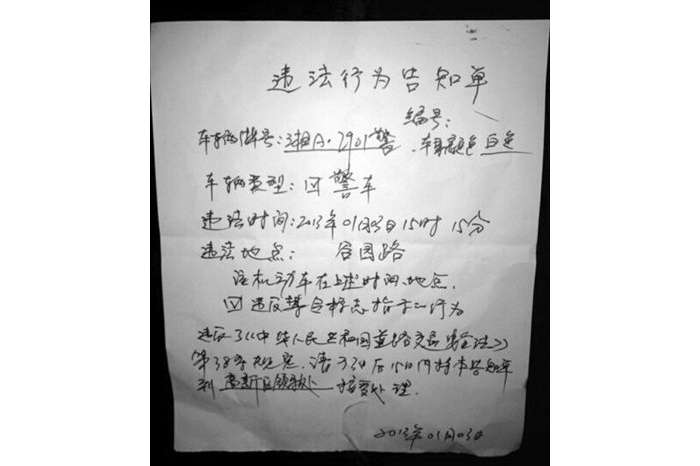 违法行为告知单
编号:
车辆牌号:湘A·2901警.车身颜色 白色
车辆类型:☑警车
违法时间:2013年01月03日15时15分
违法地点: 谷园路
该机动车在上述时间、地点.
☑违反禁令标志指示行为
违反了《中华人民共和国道路交通安全法》
第38条规定.请于3日后15日内持本告知单
到 高新区 接受处理.
2013年01月03日